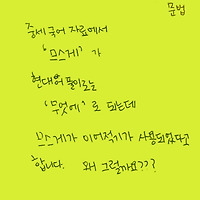 문법
중세 국어 자료에서
'므스게' 가
현대어 풀이로는
'무엇에' 로 되는데
므스게가 이어적기가 사용되었다고
합니다. 왜 그럴까요???